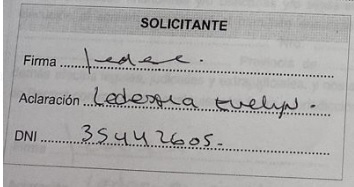 SOLICITANTE
Firma
Aclaración Ledesma Evelyn.
DNI 35442605.